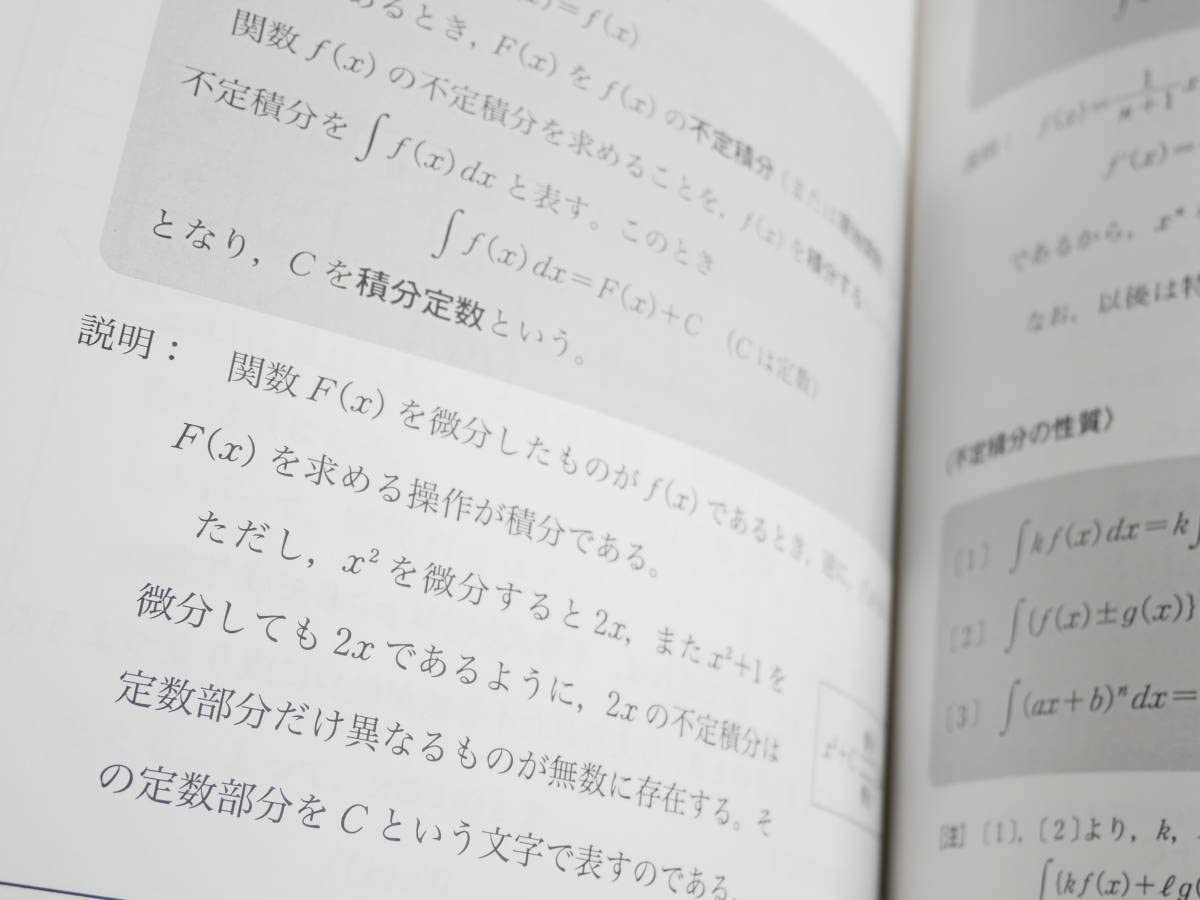 )=f(x)
あるとき，F(x) を f(x) の不定積分（または
関数 f(x) の不定積分を求めることを，f(x) を積分する
不定積分を ∫f(x)dx と表す。このとき
∫f(x)dx=F(x)+C （Cは定数）
となり，C を積分定数という。
説明： 関数 F(x) を微分したものが f(x) であるとき，逆に，
F(x) を求める操作が積分である。
ただし，x²を微分すると 2x，また x²+1 を
微分しても 2x であるように，2x の不定積分は
定数部分だけ異なるものが無数に存在する。そ
の定数部分を C という文字で表すのである。
説明： f(x)=1/(n+1)
f'(x)=
であるから，xⁿ
なお，以後は特
〈不定積分の性質〉
〔1〕 ∫kf(x)dx=k∫
〔2〕 ∫{f(x)±g(x)}
〔3〕 ∫(ax+b)ⁿdx=
[注] 〔1〕，〔2〕より，k，
∫{kf(x)+ℓg(